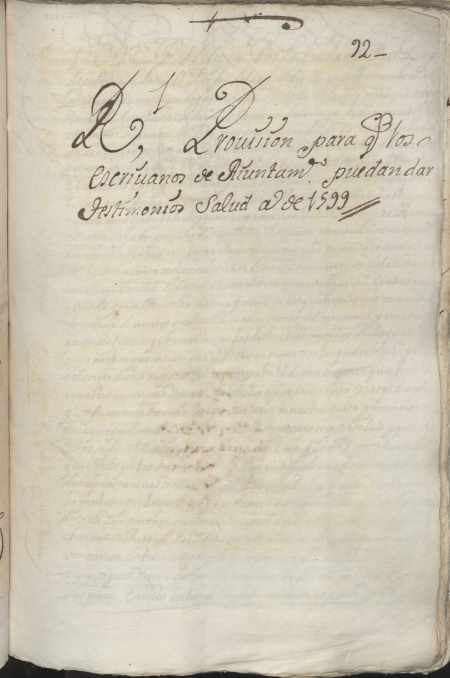 22-
Rl, Provision para q̃ los
escriuanos de Aiuntamto puedan dar
testimonios Salud aº de 1599